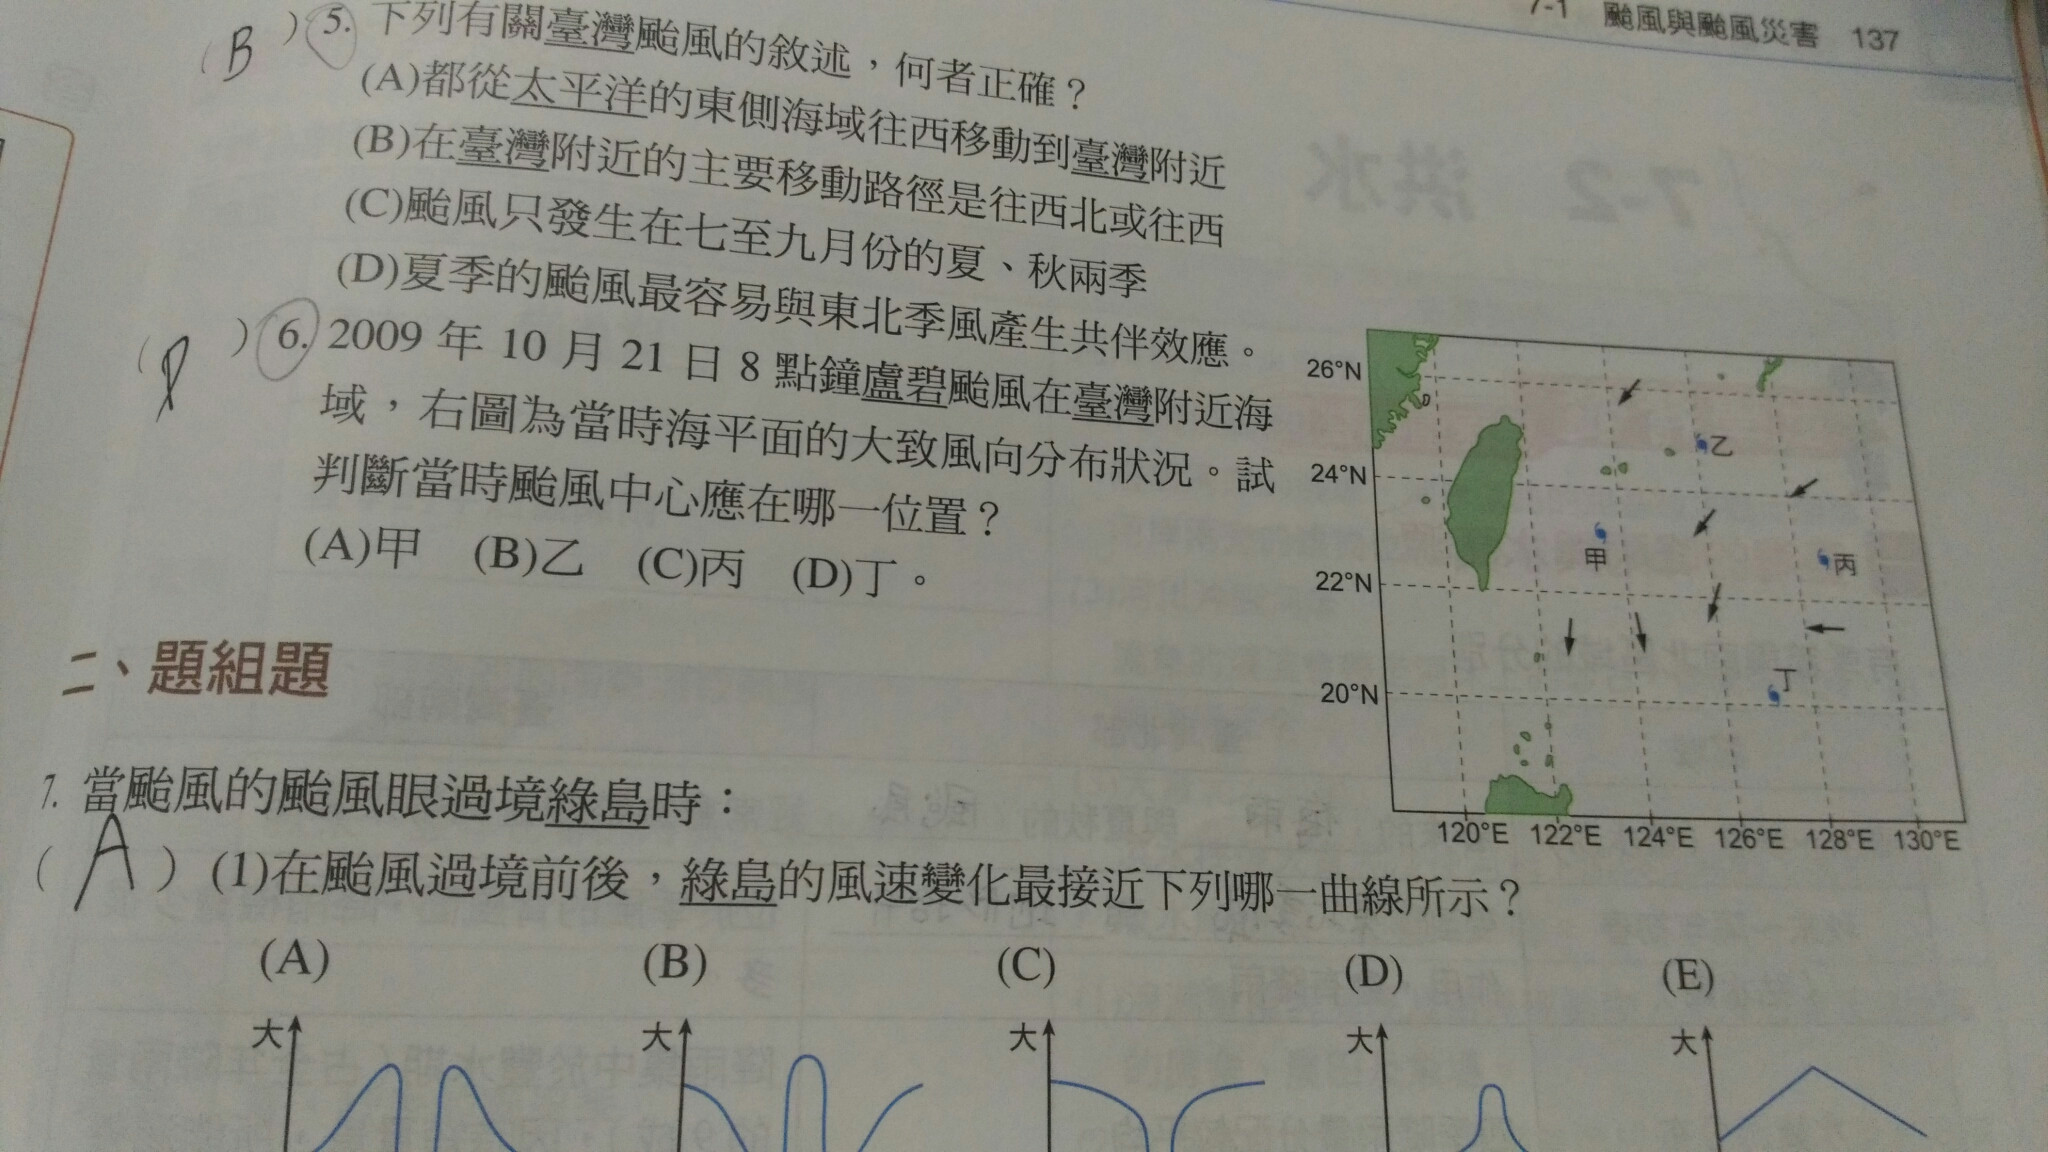 7-1 颱風與颱風災害 137
(B)5. 下列有關臺灣颱風的敘述，何者正確？
(A)都從太平洋的東側海域往西移動到臺灣附近
(B)在臺灣附近的主要移動路徑是往西北或往西
(C)颱風只發生在七至九月份的夏、秋兩季
(D)夏季的颱風最容易與東北季風產生共伴效應。
( )6. 2009 年 10 月 21 日 8 點鐘盧碧颱風在臺灣附近海
域，右圖為當時海平面的大致風向分布狀況。試
判斷當時颱風中心應在哪一位置？
(A)甲 (B)乙 (C)丙 (D)丁。
26°N
乙
24°N
甲
丙
22°N
丁
20°N
120°E 122°E 124°E 126°E 128°E 130°E
二、題組題
7. 當颱風的颱風眼過境綠島時：
(A)(1)在颱風過境前後，綠島的風速變化最接近下列哪一曲線所示？
(A) (B) (C) (D) (E)
大 大 大 大 大
7-2 洪水